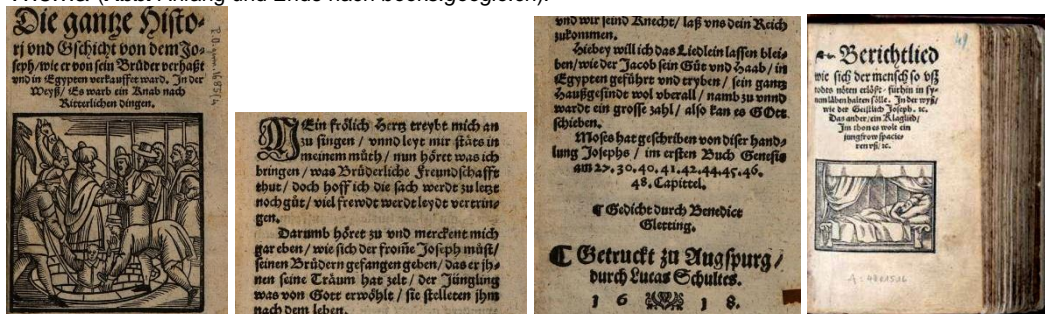 Die gantze Histo-
rj vnd Gschicht von dem Jo-
seph/wie er von sein Brüder verhaßt
vnd in Egypten verkauffet ward. In der
Weyß/ Es warb ein Knab nach
Ritterlichen dingen.
MEin frölich Hertz treybt mich an
zu singen / vnnd leyt mir stäts in
meinem můth / nun höret was ich
bringen / was Brüderliche Freundschafft
thut / doch hoff ich die sach werdt zu letzt
noch güt / viel frewdt werdt leydt vertrin-
gen.
Darumb höret zu vnd merckent mich
gar eben / wie sich der from̃e Joseph müst/
seinen Brüdern gefangen geben/das er jh-
nen seine Träum hat zelt / der Jüngling
was von Gott erwöhlt / sie stelleten jhm
nach dem leben.
vnd wir seind Knecht/ laß vns dein Reich
zukommen.
Hiebey will ich das Liedlein lassen blei-
ben/wie der Jacob sein Güt vnd Haab / in
Egypten geführt vnd tryben / sein gantz
Haußgesindt wol vberall / namb zu vnnd
wardt ein grosse zahl / also kan es GOtt
schieben.
Moses hat geschriben von diser hand-
lung Josephs / im ersten Buch Genesis
am 27. 30. 40. 41. 42. 44. 45. 46.
48. Capittel.
¶ Gedicht durch Benedict
Gletting.
¶ Getruckt zu Augspurg /
durch Lucas Schultes.
1 6 1 8.
Berichtlied
wie sich der mensch so vß
todts nöten erlößt / fürhin in sy-
nem läben halten sölle. In der wyß/
wie der Geistlich Joseph. ꝛc.
Das ander/ein Klaglied/
Im thon es wolt ein
jungfrow spacie-
ren vß/ ꝛc.